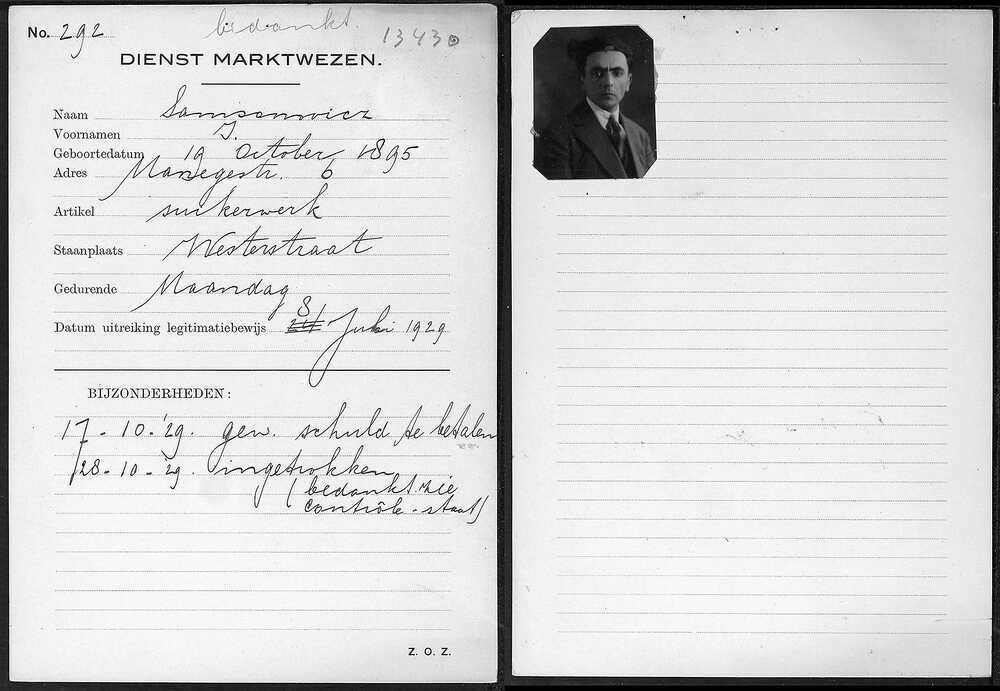 No. 292 bedankt. 13430
DIENST MARKTWEZEN.
Naam Samsonowicz
Voornamen J.
Geboortedatum 19 October 1895
Adres Manegestr. 6
Artikel suikerwerk
Staanplaats Westerstraat
Gedurende Maandag
8
Datum uitreiking legitimatiebewijs Juli 1929
BIJZONDERHEDEN:
17-10-'29. gew. schuld te betalen
28-10-'29. ingetrokken
(bedankt zie
contrôle-staat)
Z. O. Z.